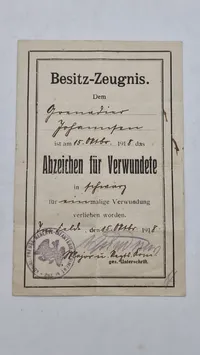 Besitz-Zeugnis.
Dem
Grenadier
Johannsen
ist am 15. Oktbr. 1918 das
Abzeichen für Verwundete
in schwarz
für einmalige Verwundung
verliehen worden.
Felde, den 15. Oktbr 1918
Major u. Regts. Kom
gez. Unterschrift.